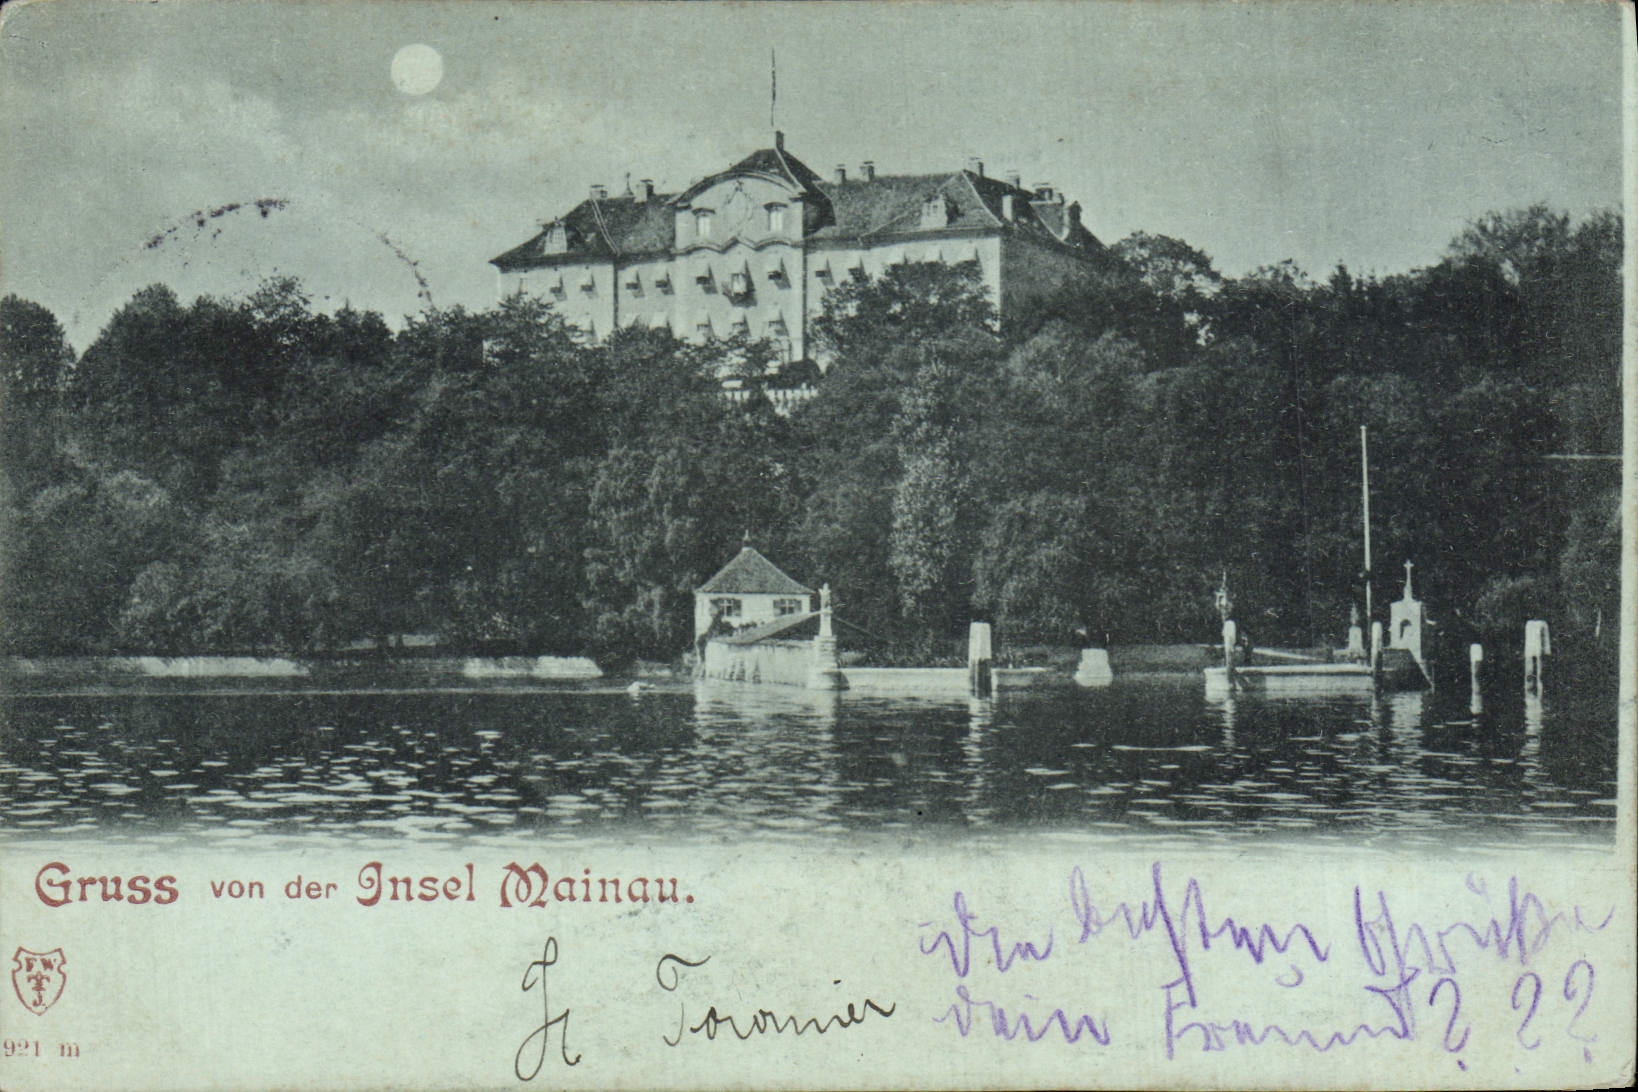 Gruss von der Insel Mainau.
F W
J.
921 m
H Fournier
Die besten Grüße
dein Freund ? ? ?